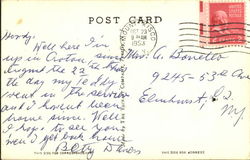 POST CARD
1953
Howdy.
Well here I'm
up in Croton since
August the 22 the
the day my Teddy
went in the service
and I havent been
home since. Well
I hope to see you
won't get back home
Betty
Mrs. G. Bonello
9245-53rd Ave
Elmhurst, L.I.
N.Y.
THIS SIDE FOR CORRESPONDENCE
THIS SIDE FOR ADDRESS